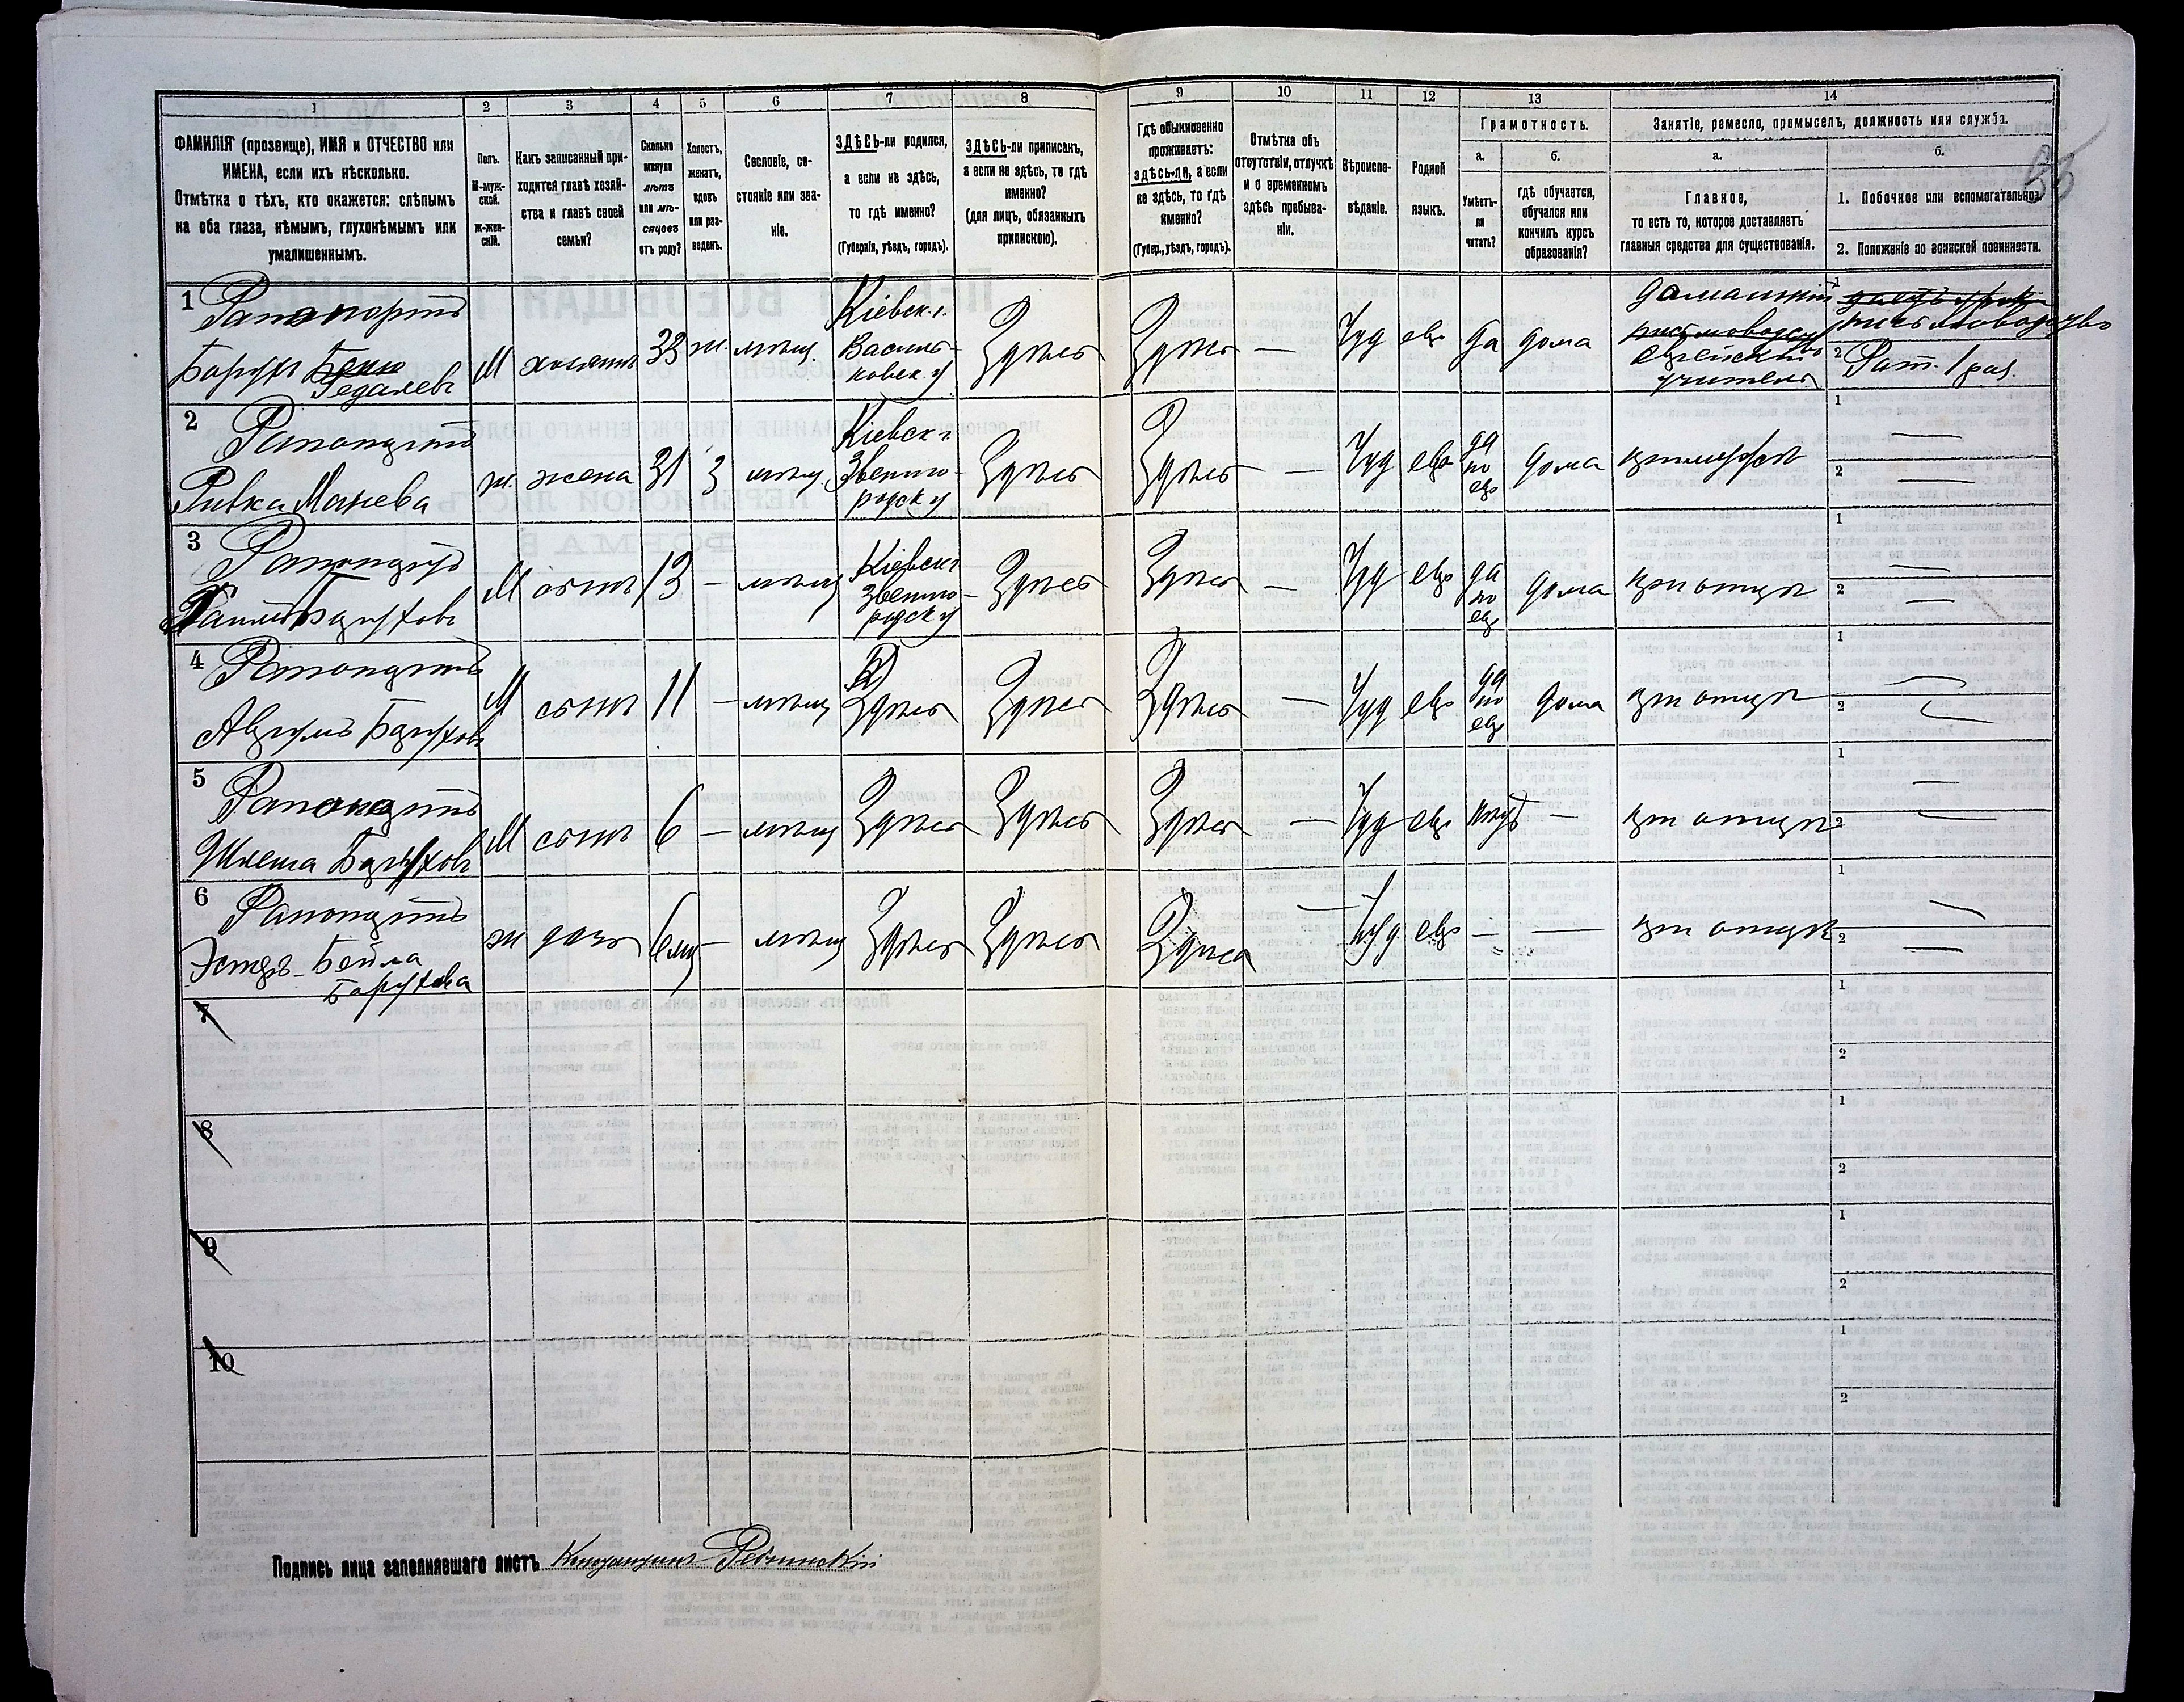 1
2
3
4
5
6
7
8
9
10
11
12
13
14
ФАМИЛІЯ (прозвище), ИМЯ и ОТЧЕСТВО или
ИМЕНА, если ихъ нѣсколько.
Отмѣтка о тѣхъ, кто окажется: слѣпымъ
на оба глаза, нѣмымъ, глухонѣмымъ или
умалишеннымъ.
Полъ.
М-муж-
ской.
Ж-жен-
скій.
Какъ записанный при-
ходится главѣ хозяй-
ства и главѣ своей
семьи?
Сколько
минуло
лѣтъ
или мѣ-
сяцевъ
отъ роду?
Холостъ,
женатъ,
вдовъ
или раз-
веденъ.
Сословіе, со-
стояніе или зва-
ніе.
ЗДѢСЬ-ли родился,
а если не здѣсь,
то гдѣ именно?
(Губернія, уѣздъ, городъ).
ЗДѢСЬ-ли приписанъ,
а если не здѣсь, то гдѣ
именно?
(для лицъ, обязанныхъ
припискою).
Гдѣ обыкновенно
проживаетъ:
здѣсь-ли, а если
не здѣсь, то гдѣ
именно?
(Губер., уѣздъ, городъ).
Отмѣтка объ
отсутствіи, отлучкѣ
и о временномъ
здѣсь пребыва-
ніи.
Вѣроиспо-
вѣданіе.
Родной
языкъ.
Грамотность.
а.
Умѣетъ-
ли
читать?
б.
гдѣ обучается,
обучался или
кончилъ курсъ
образованія?
Занятіе, ремесло, промыселъ, должность или служба.
а.
Главное,
то есть то, которое доставляетъ
главныя средства для существованія.
б.
1. Побочное или вспомогательное.
2. Положеніе по воинской повинности.
1 Рапопортъ
Борухъ Гедалевъ
М
хозяинъ
33
ж.
мѣщ.
Кіевск. г.
Василь-
ковск. у
Здѣсь
Здѣсь
—
Іуд
евр
да
дома
домашній
еврейскій
учитель
1
письмоводство
2 Рат. 1 раз.
2 Рапопортъ
Ривка Манева
ж.
жена
31
З
мѣщ.
Кіевск г.
Звениго-
родск у
Здѣсь
Здѣсь
—
Іуд
евр
да
по
евр
дома
при мужѣ
1 —
2 —
3 Рапопортъ
Боруховъ
М
сынъ
13
—
мѣщ
Кіевск г
Звениго-
родск у
Здѣсь
Здѣсь
—
Іуд
евр
да
по
евр
дома
при отцѣ
1 —
2 —
4 Рапопортъ
Аврумъ Боруховъ
М
сынъ
11
—
мѣщ
Здѣсь
Здѣсь
Здѣсь
—
Іуд
евр
да
по
евр
дома
при отцѣ
1 —
2 —
5 Рапопортъ
Шлема Боруховъ
М
сынъ
6
—
мѣщ
Здѣсь
Здѣсь
Здѣсь
—
Іуд
евр
нѣтъ
—
при отцѣ
1 —
2 —
6 Рапопортъ
Эстеръ-Бейла
Борухова
ж
дочь
6 мц
—
мѣщ
Здѣсь
Здѣсь
Здѣсь
—
Іуд
евр
—
—
при отцѣ
1 —
2 —
7
1
2
8
1
2
9
1
2
10
1
2
Подпись лица заполнявшаго листъ